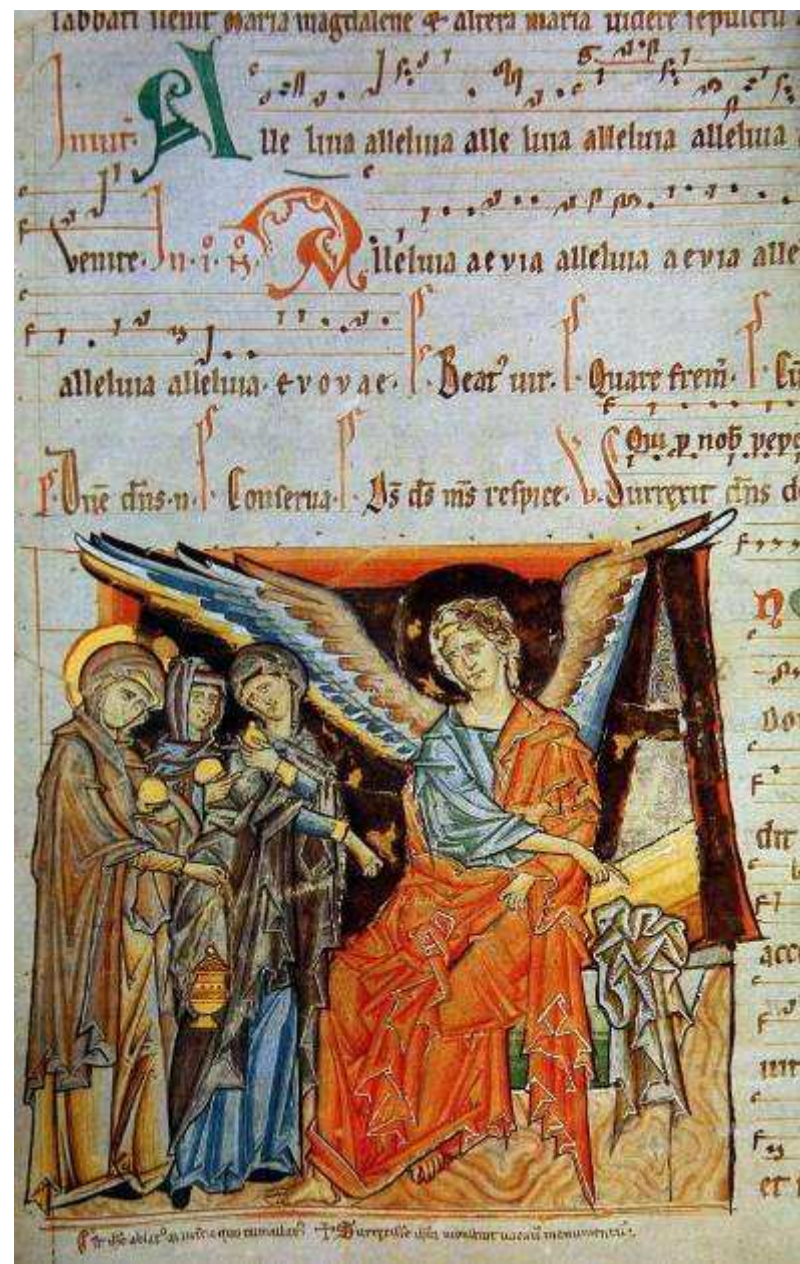 sabbati uenit maria magdalene & altera maria uidere sepulcrū
Inuit. Alle luia alleluia alle luia alleluia alleluia
Venite. In .i. N. Alleluia aevia alleluia aevia alle
alleluia alleluia. evovae. Ps Beatꝰ uir. Ps Quare frem̄. Ps Cū
Qui p nob pepe
Ps Dn̄e dn̄s n. Ps Conserua. Ps Ds̄ ds̄ ms̄ respice. V. Surrexit dn̄s d
N
do
dit
acce
uit
et